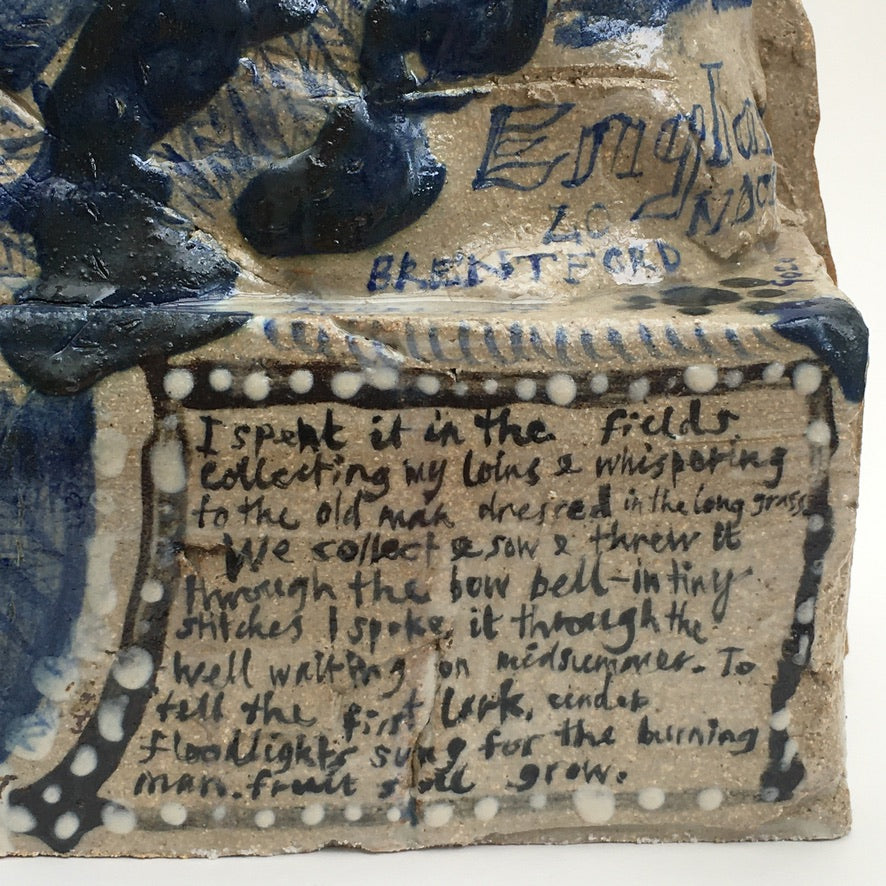 Engla
LO NDO
BRENTFORD
I spent it in the fields
collecting my loins & whispering
to the old man dressed in the long grass
We collect & sow & threw it
through the bow bell-in tiny
stitches I spoke it through the
well waiting on midsummer. To
tell the first lark, under
floodlights sung for the burning
man. fruit still grow.